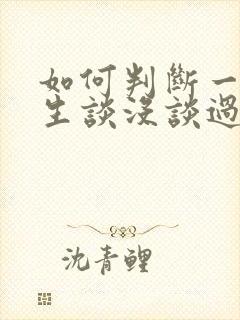 如何判斷一
生談沒談過
沈青鯉